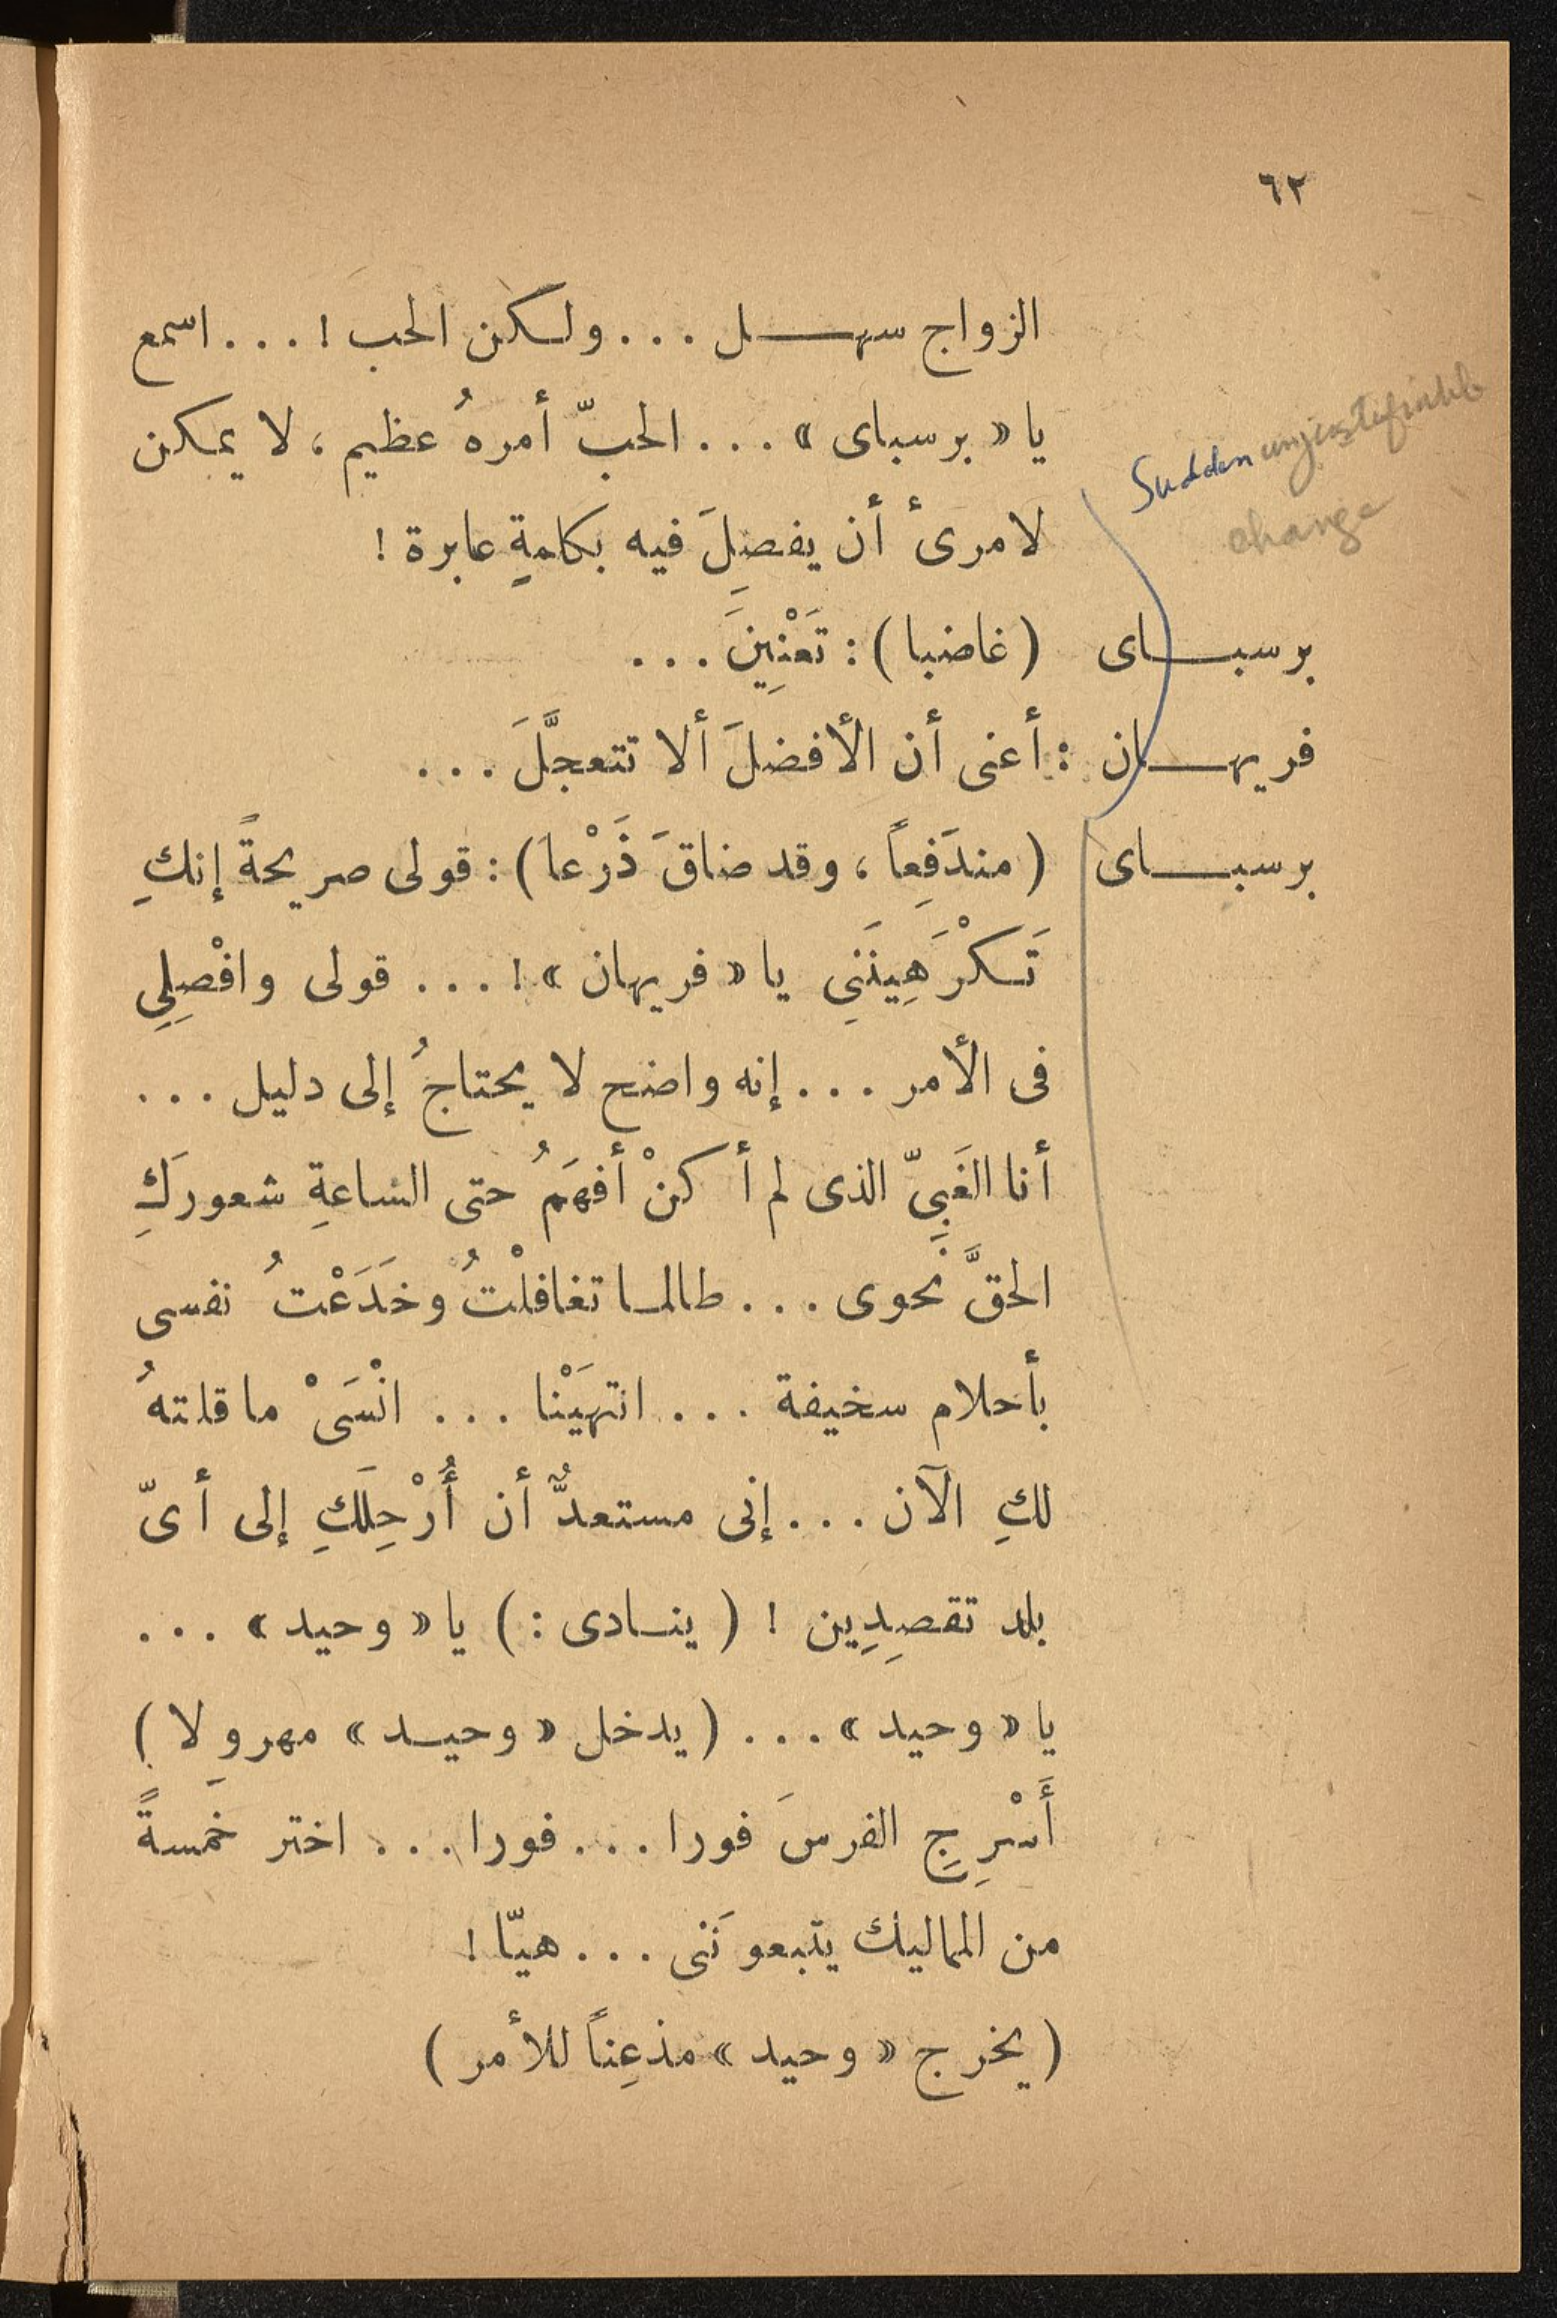 ٦٢
الزواج سهل ... ولكن الحب ! ... اسمع
يا « برسباى » ... الحبّ أمرهُ عظيم ، لا يمكن
لامرئ أن يفصِلَ فيه بكلمةٍ عابرة !
Sudden unjustifiable
change
برسباى (غاضبا) : تَعْنِينَ ...
فريهان : أعنى أن الأفضلَ ألا تتعجَّلَ ...
برسباى (مندَفِعاً ، وقد ضاقَ ذَرْعا) : قولى صريحةً إنكِ
تَكْرَهِينَنِي يا « فريهان » ! ... قولى وافْصِلِي
فى الأمر ... إنه واضح لا يحتاجُ إلى دليل ...
أنا الغَبِيّ الذى لم أكنْ أفهَمُ حتى الساعةِ شعورَكِ
الحقَّ نَحوى ... طالما تغافلْتُ وخَدَعْتُ نفسى
بأحلام سخيفة ... انتهَيْنا ... انْسَىْ ما قلتهُ
لكِ الآن ... إنى مستعدٌّ أن أُرْحِلَكِ إلى أىّ
بلد تقصِدِين ! ( ينادى : ) يا « وحيد » ...
يا « وحيد » ... ( يدخل « وحيد » مهرولا )
أَسْرِجِ الفرسَ فورا ... فورا ... اختر خَمسةً
من المماليك يتبعونَنى ... هيّا !
( يخرج « وحيد » مذعِناً للأمر )